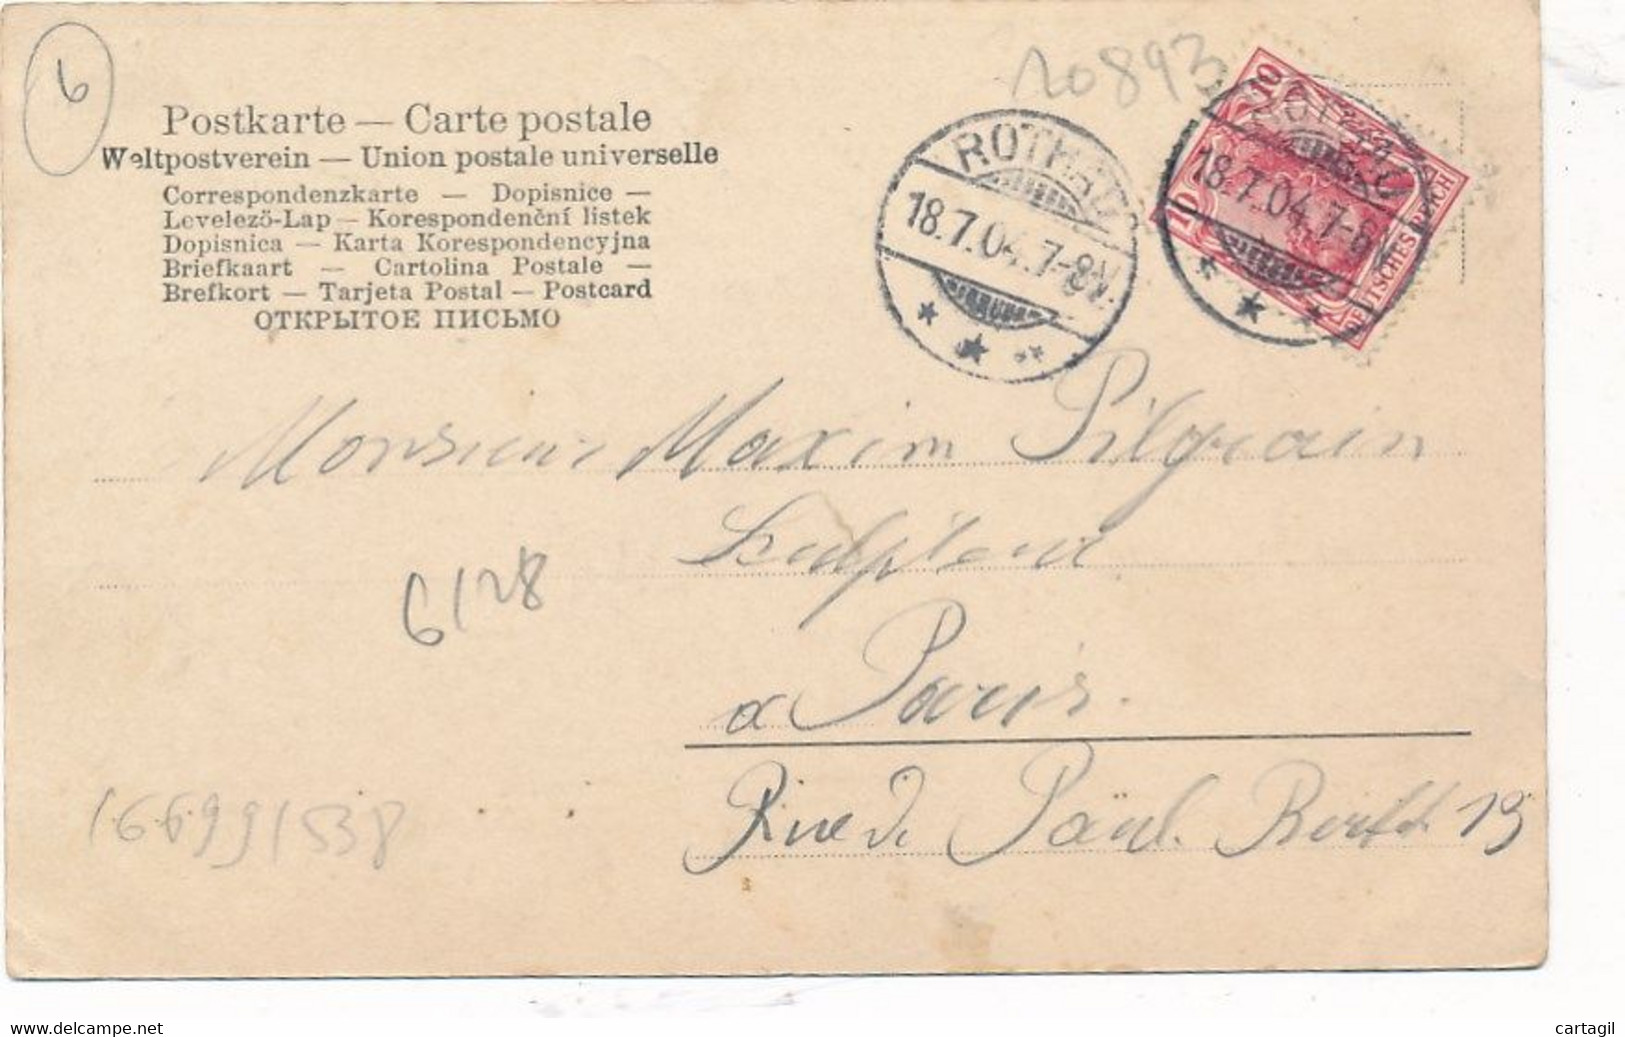 6
20893
Postkarte — Carte postale
Weltpostverein — Union postale universelle
Correspondenzkarte — Dopisnice —
Levelező-Lap — Korespondenční listek
Dopisnica — Karta Korespondencyjna
Briefkaart — Cartolina Postale —
Brefkort — Tarjeta Postal — Postcard
ОТКРЫТОЕ ПИСЬМО
ROTHAU
18.7.04.7-8V.
10
10
DEUTSCHES REICH
18.7.04.7-8V
Monsieur Maxim Pilgrain
Sculpteur
6128
a Paris.
Rue de Paul Bert 19
16699/538
www.delcampe.net
cartagil